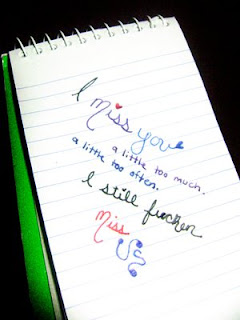 I
miss you
a little too much.
a little too often.
I still fucken
Miss
Us